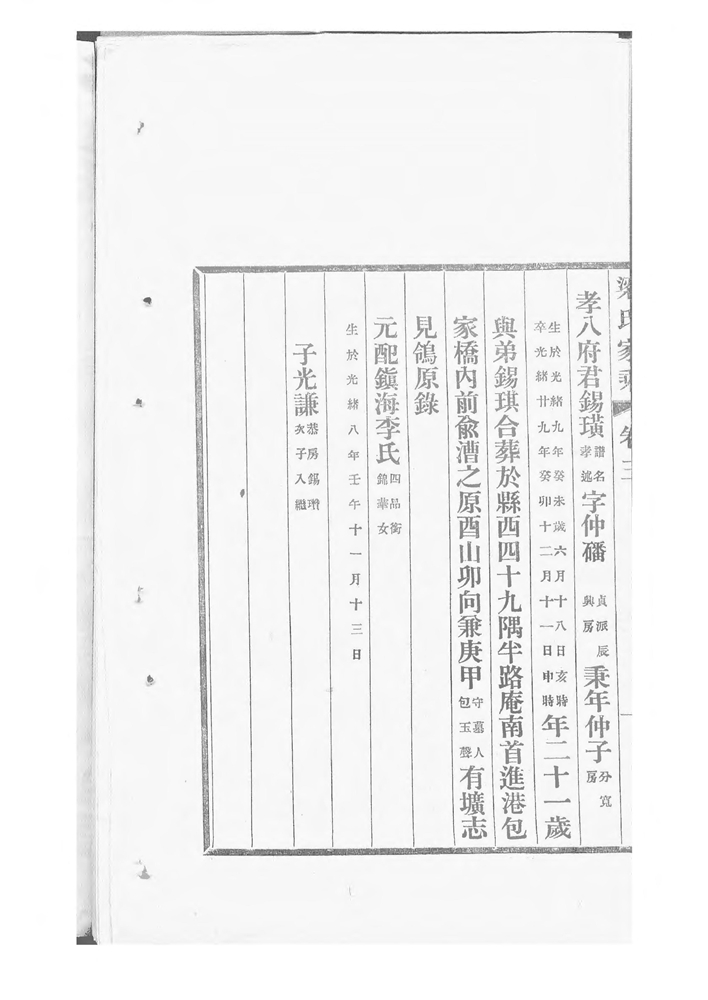 梁氏家乘 卷三
孝八府君錫璜譜名孝遙字仲磻貞派辰興房秉年仲子分寬房
生於光緒九年癸未歲六月十八日亥時卒光緒廿九年癸卯十二月十一日申時年二十一歲
與弟錫琪合葬於縣西四十九隅半路庵南首進港包
家橋內前兪漕之原酉山卯向兼庚甲守墓人包玉聲有壙志
見鴿原錄
元配鎭海李氏四品銜錦華女
生於光緒八年壬午十一月十三日
子光謙恭房錫瓚次子入繼